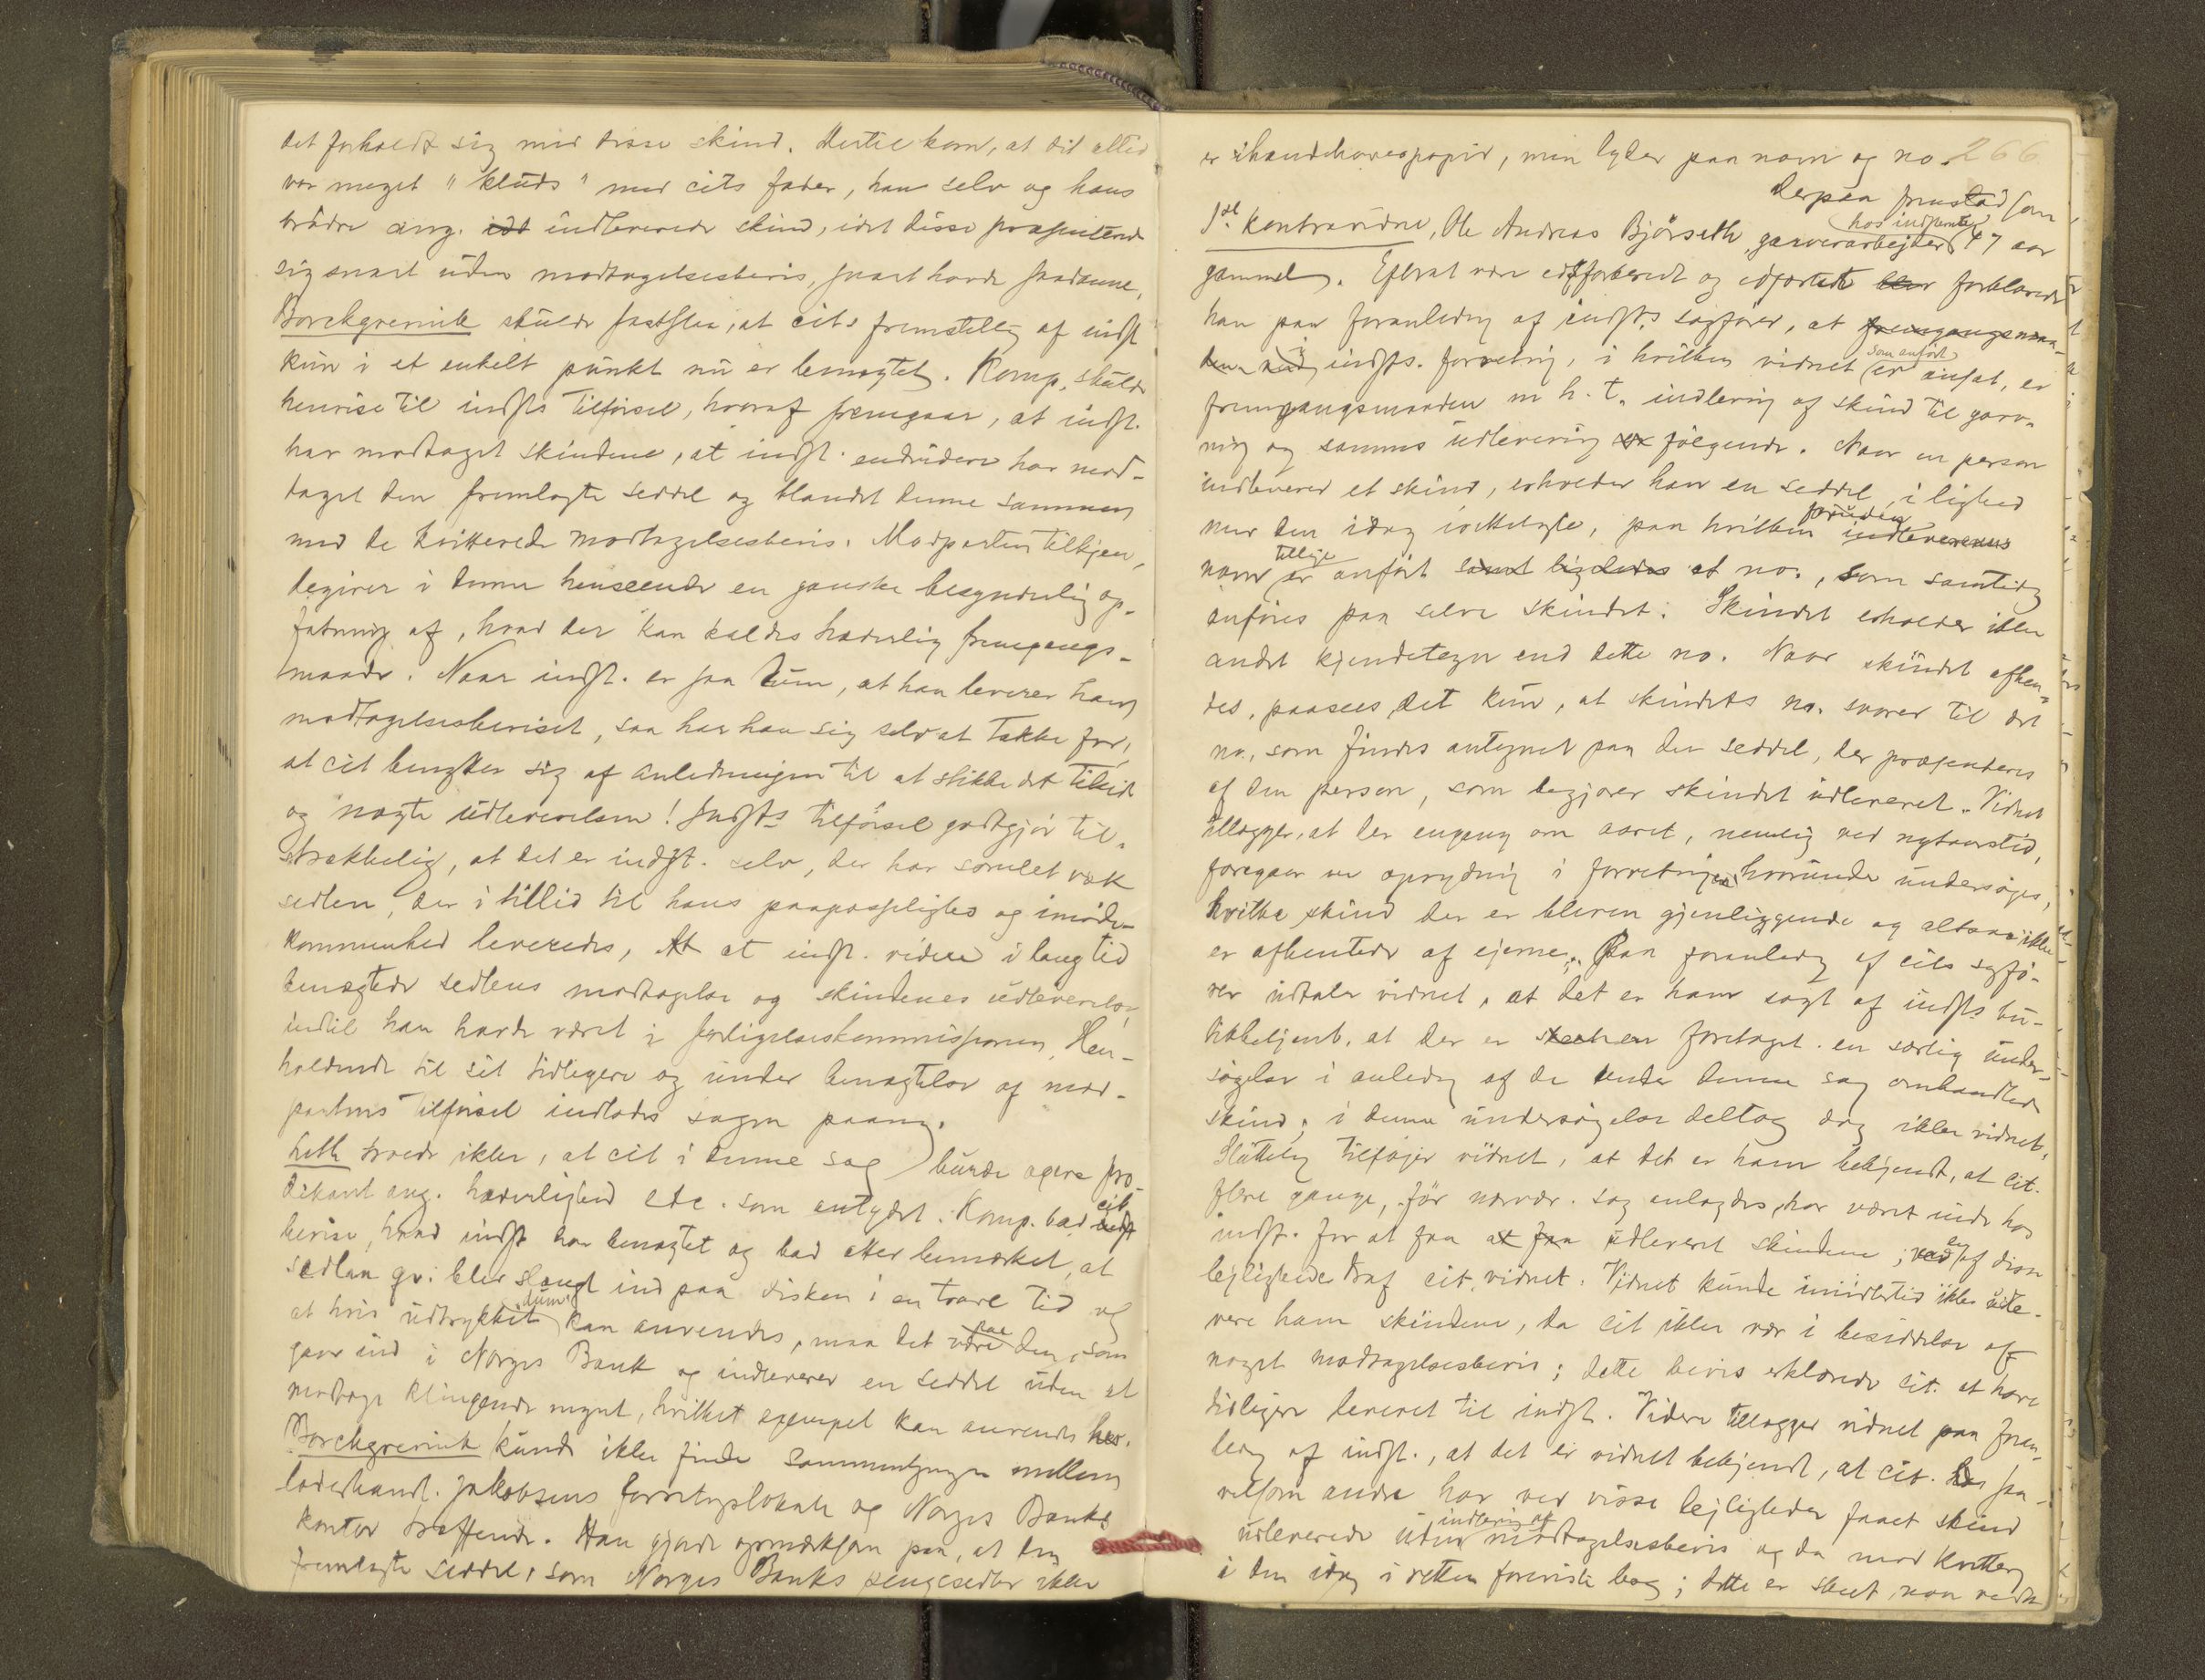 det forholdt sig med disse skind. Hertil kom, at det altid
var meget "kluds" med cits fader, han selv og hans
brødre ang. idt indleverede skind, idet disse præsenterede
sig snart uden modtagelsesbevis, snart havde saadanne.
Borchgrevink skulde fastslaa, at cit.s fremstilling af indst
kun i et enkelt punkt nu er benægtet. Komp. skulde
henvise til indsts tilførsel, hvoraf fremgaar, at indst.
har modtaget skindene, at indst. endvidere har mod-
taget den fremlagte seddel og blandet denne sammen
med de kvitterede modtagelsesbevis. Modparten tilkjen-
degiver i denne henseende en ganske besynderlig op-
fatning af, hvad der kan kaldes hæderlig fremgangs-
maade. Naar indst. er saa dum, at han leverer ham
modtagelsesbeviset, saa har han sig selv at takke for,
at cit benytter sig af anledningen til at stikke det tilside
og nægte udleverelsen! Indsts tilførsel godtgjør til-
strækkelig, at det er indst. selv, der har somlet væk
sedlen, der i tillid til hans paapasselighed og imøde-
kommenhed leveredes, at indst. videre i lang tid
benægtede sedlens modtagelse og skindenes udleverelse,
indtil han havde været i forligelseskommissionen. Hen-
holdende til sit tidligere og under benægtelse af mod-
partens tilførsel indlodes sagen paany.
Leth troede ikke, at cit i denne sag burde agere pro-
vikant ang. hæderlighed etc. som antydet. Komp. bad cit. indst
bevise, hvad indst har benægtet og bad atter bemærket, at
sedlen gv: blev slængt ind paa disken i en travl tid og
at hvis udtrykket "dum" kan anvendes, maa det være paa den, som
gaar ind i Norges Bank og indleverer en seddel uden at
modtage klingende mynt, hvilket exempel kan anvendes her.
Borchgrevink kunde ikke finde sammenligningen mellem
læderhandl. Jakobsens forretningslokale og Norges Banks
kontor træffende. Han gjorde opmærksom paa, at den
fremlagte seddel, som Norges Banks pengesedler ikke
er ihændehaverpapir, men lyder paa navn og no. 266
Derpaa fremstod som
1ste kontravidne, Ole Andreas Bjørseth, garverarbejder hos indstævnte, 47 aar
gammel. Efterat være edfforberedt og edfæstet blev forklarede
han paa foranledning af indsts sagfører, at fremgangsmaa-
den ved i indsts. forretning, i hvilken vidnet som anført er ansat, er
fremgangsmaaden m h. t. indlevering af skind til garv-
ning og sammes udlevering er følgende. Naar en person
indleverer et skind, erholder han en seddel, i lighed
med den idag irettelagte, paa hvilken foruden indleverens
navn tillige er anført samt ligeledes et no., som samtidig
anføres paa selve skindet. Skindet erholder ikke
andet kjendetegn end dette no. Naar skindet afhen-
tes, paasees det kun, at skindets no. svarer til det
no., som findes antegnet paa den seddel, der præsenteres
af den person, som begjærer skindet udleveret. Vidnet
tillægger, at der engang om aaret, nemlig ved nytaarstid,
foregaar en oprydning i forretningen, hvorunder undersøges,
hvilke skind der er bleven gjenliggende og altsaa ikke
er afhentede af ejerne. Paa foranledg af cits sagfø-
rer udtaler vidnet, at det er ham sagt af indsts bu-
tikbetjent, at der er foretaget en særlig under-
søgelse i anledng af de under denne sag omhandlede
skind; i denne undersøgelse deltog dog ikke vidnet.
Sluttelig tilføjer vidnet, at det er ham bekjendt, at cit.
flere gange, før nærvær. sag anlagdes, har været inde hos
indst. for at faa at faa udleveret skindene; ved en af disse
lejligheder traf cit. vidnet. Vidnet kunde imidlertid ikke udle-
vere ham skindene, da cit ikke var i besiddelse af
noget modtagelsesbevis; dette bevis erklærede cit. at have
tidligere leveret til indst. Videre tillægger vidnet paa foran-
ledng af indst., at det er vidnet bekjendt, at cit. saa-
velsom andre har ved visse lejligheder faaet skind
udleverede uden indlevering af modtagelsesbevis og da mod kvittering
i den idag i retten foreviste bog; dette er skeet, naar vedk